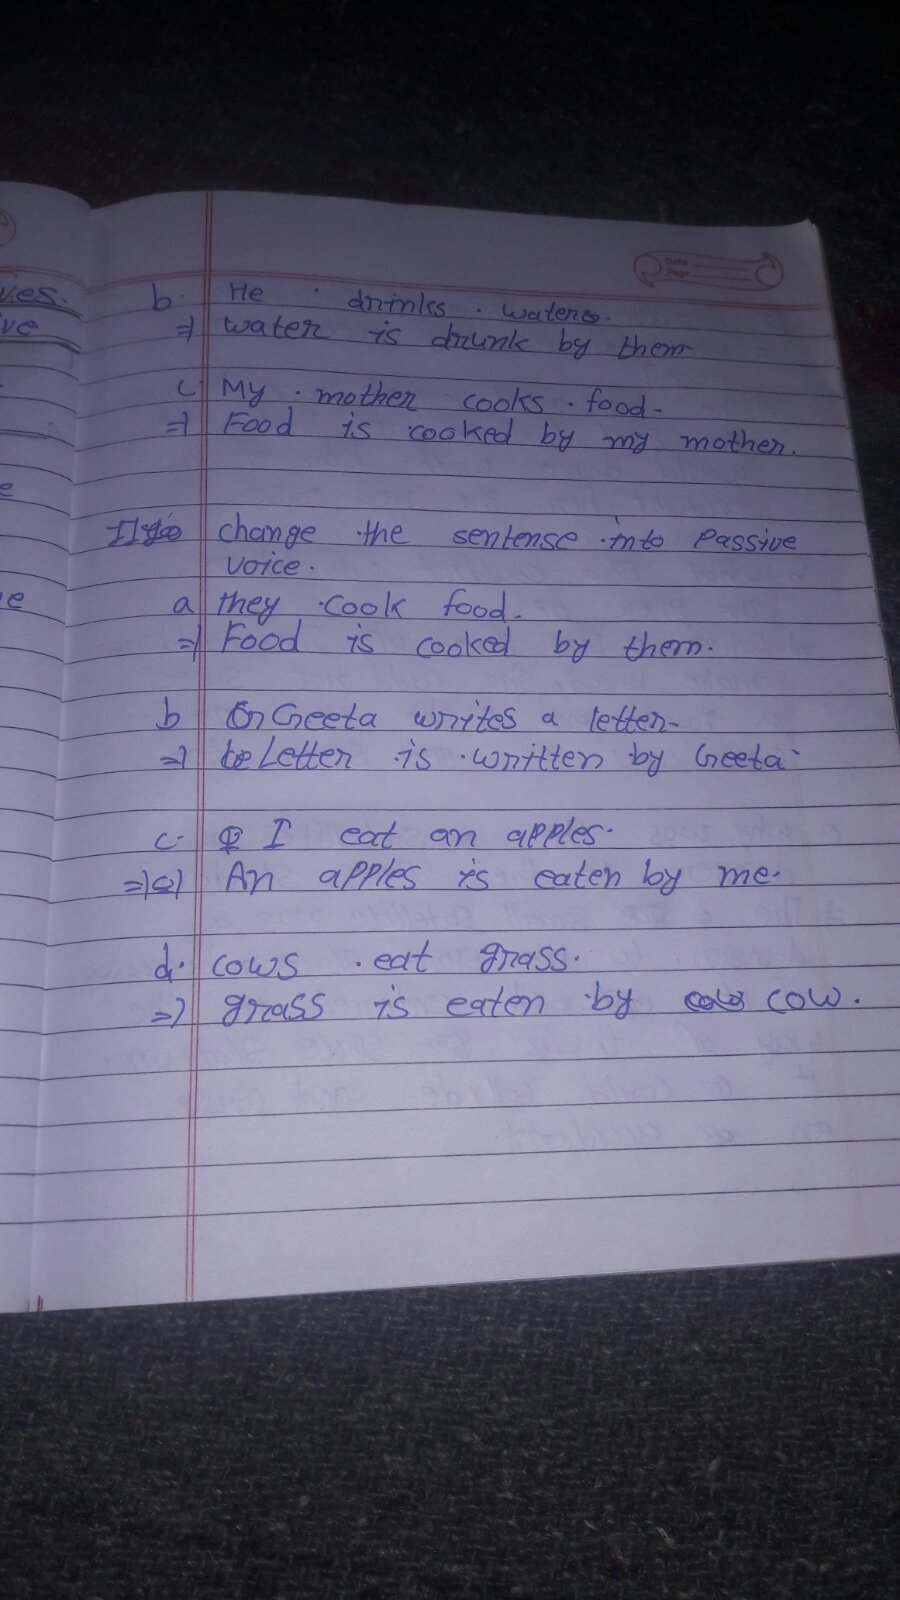 vies.
ve
e
e
Date
Page
b. He drinks water.
=> water is drunk by them
c My mother cooks food-
=> Food is cooked by my mother.
change the sentense into passive
voice.
a they cook food.
=> Food is cooked by them.
b Geeta writes a letter-
=> Letter is written by Geeta
c. I eat an apples.
=> An apples is eaten by me.
d. cows eat grass.
=> grass is eaten by cow.